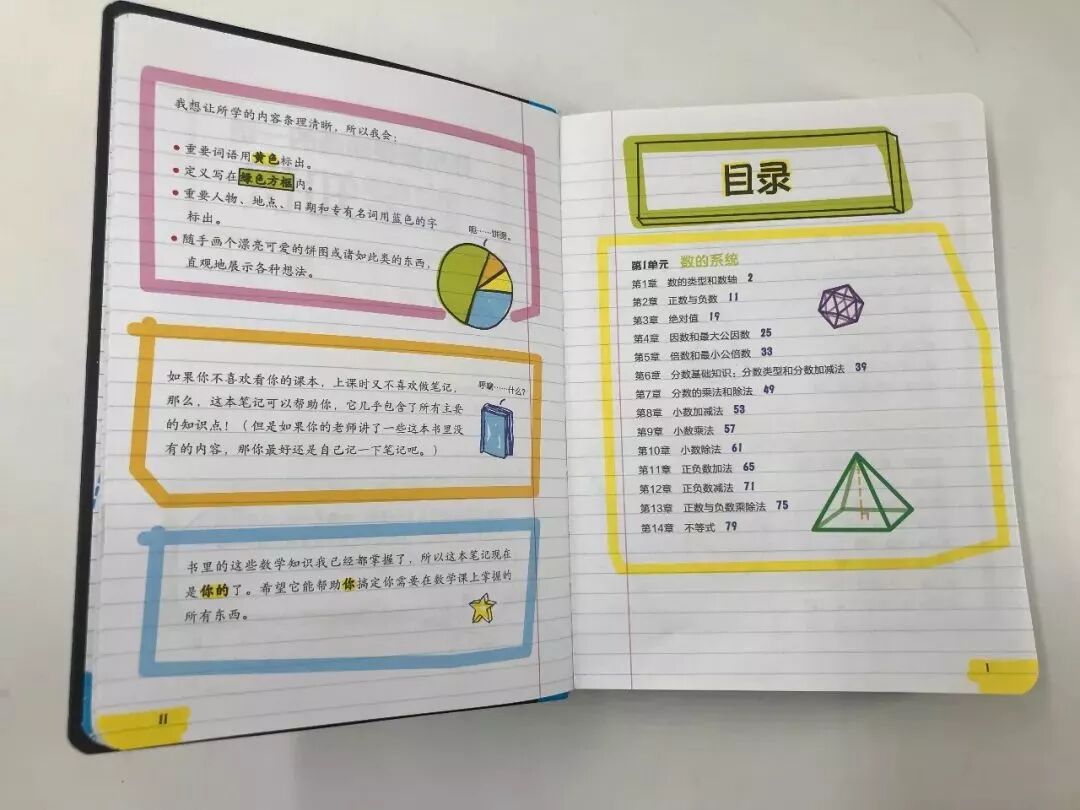 我想让所学的内容条理清晰，所以我会：
• 重要词语用黄色标出。
• 定义写在绿色方框内。
• 重要人物、地点、日期和专有名词用蓝色的字
标出。
• 随手画个漂亮可爱的饼图或诸如此类的东西，
直观地展示各种想法。
呃……饼图。
如果你不喜欢看你的课本，上课时又不喜欢做笔记，
那么，这本笔记可以帮助你，它几乎包含了所有主要
的知识点！（但是如果你的老师讲了一些这本书里没
有的内容，那你最好还是自己记一下笔记吧。）
呼噜……什么？
书里的这些数学知识我已经都掌握了，所以这本笔记现在
是你的了。希望它能帮助你搞定你需要在数学课上掌握的
所有东西。
II
目录
第1单元 数的系统
第1章 数的类型和数轴 2
第2章 正数与负数 11
第3章 绝对值 19
第4章 因数和最大公因数 25
第5章 倍数和最小公倍数 33
第6章 分数基础知识：分数类型和分数加减法 39
第7章 分数的乘法和除法 49
第8章 小数加减法 53
第9章 小数乘法 57
第10章 小数除法 61
第11章 正负数加法 65
第12章 正负数减法 71
第13章 正数与负数乘除法 75
第14章 不等式 79
1